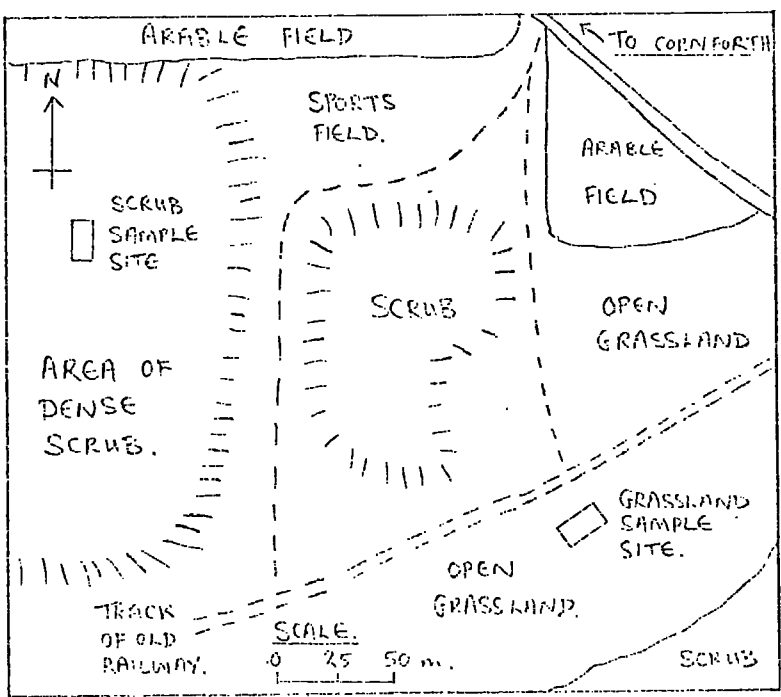 ARABLE FIELD
TO CORNFORTH
N
SPORTS
FIELD.
ARABLE
FIELD
SCRUB
SAMPLE
SITE
SCRUB
OPEN
GRASSLAND
AREA OF
DENSE
SCRUB.
GRASSLAND
SAMPLE
SITE.
OPEN
GRASSLAND.
TRACK
OF OLD
RAILWAY.
SCALE.
0 25 50 m.
SCRUB